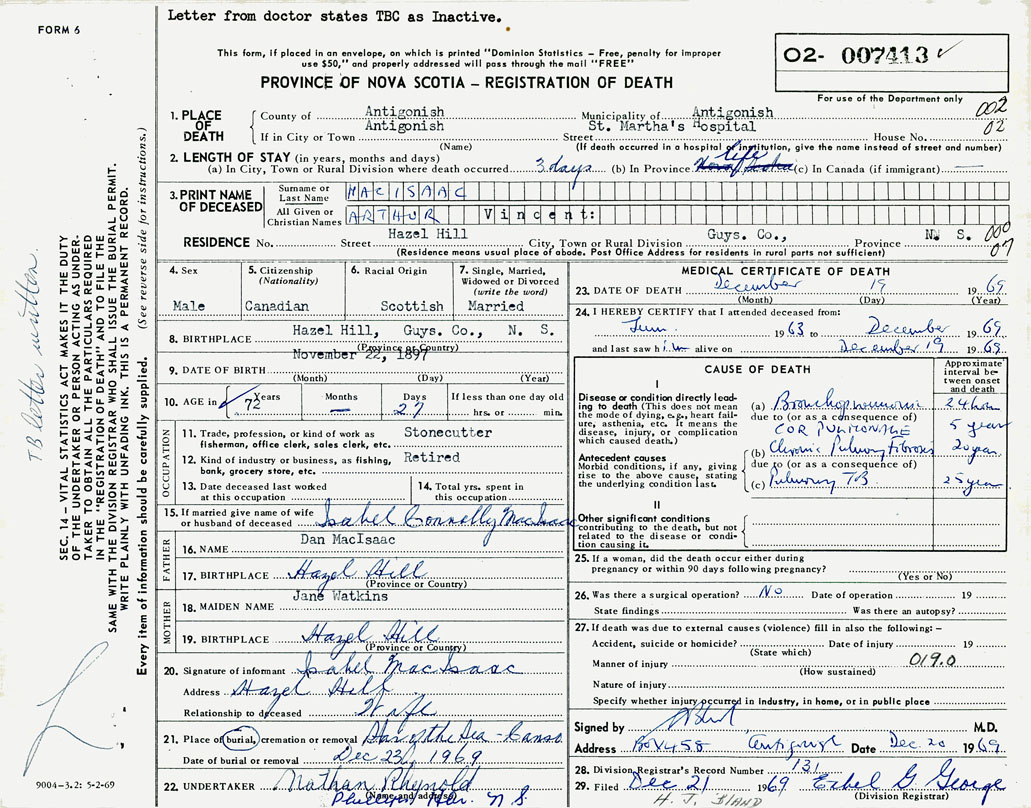 Letter from doctor states TBC as Inactive.
FORM 6
This form, if placed in an envelope, on which is printed "Dominion Statistics – Free, penalty for improper
use $50," and properly addressed will pass through the mail "FREE"
02- 007413 ✓
For use of the Department only
PROVINCE OF NOVA SCOTIA – REGISTRATION OF DEATH
1. PLACE OF DEATH
County of Antigonish Municipality of Antigonish 002
If in City or Town Antigonish Street St. Martha's Hospital House No. 02
(Name) (If death occurred in a hospital or institution, give the name instead of street and number)
2. LENGTH OF STAY (in years, months and days)
(a) In City, Town or Rural Division where death occurred 3 days (b) In Province life Nova Scotia (c) In Canada (if immigrant) —
3. PRINT NAME OF DECEASED
Surname or Last Name MACISAAC
All Given or Christian Names ARTHUR Vincent:
RESIDENCE No. Street Hazel Hill City, Town or Rural Division Guys. Co., Province N. S. 000
(Residence means usual place of abode. Post Office Address for residents in rural parts not sufficient) 07
4. Sex
Male
5. Citizenship
(Nationality)
Canadian
6. Racial Origin
Scottish
7. Single, Married,
Widowed or Divorced
(write the word)
Married
8. BIRTHPLACE Hazel Hill, Guys. Co., N. S.
(Province or Country)
9. DATE OF BIRTH November 22, 1897
(Month) (Day) (Year)
10. AGE in ✓ Years 72 Months — Days 27 If less than one day old
hrs. or min.
OCCUPATION
11. Trade, profession or kind of work as Stonecutter
fisherman, office clerk, sales clerk, etc.
12. Kind of industry or business, as fishing, Retired
bank, grocery store, etc.
13. Date deceased last worked
at this occupation
14. Total yrs. spent in
this occupation
15. If married give name of wife
or husband of deceased Isabel Connelly MacIsaac
FATHER
16. NAME Dan MacIsaac
17. BIRTHPLACE Hazel Hill
(Province or Country)
MOTHER
18. MAIDEN NAME Jane Watkins
19. BIRTHPLACE Hazel Hill
(Province or Country)
20. Signature of informant Isabel MacIsaac
Address Hazel Hill
Relationship to deceased Wife
21. Place of burial, cremation or removal Star of the Sea - Canso
Date of burial or removal Dec 22, 1969
22. UNDERTAKER Nathan
(Name and address) N. S.
MEDICAL CERTIFICATE OF DEATH
23. DATE OF DEATH December 19 1969
(Month) (Day) (Year)
24. I HEREBY CERTIFY that I attended deceased from:
1963 to December 1969
and last saw him alive on December 19 1969
CAUSE OF DEATH
Approximate interval between onset and death
I
Disease or condition directly leading to death (This does not
mean the mode of dying, e.g., heart failure, asthenia, etc. it means the
disease, injury, or complication
which caused death.)
(a) Bronchopneumonia 24 hour
due to (or as a consequence of)
COR PULMONALE 5 years
Antecedent causes
Morbid conditions, if any, giving
rise to the above cause, stating
the underlying condition last.
(b) Chronic Pulmonary Fibrosis 20 years
due to (or as a consequence of)
(c) Pulmonary TB 25 years
II
Other significant conditions
contributing to the death, but not
related to the disease or condition
causing it.
25. If a woman, did the death occur either during
pregnancy or within 90 days following pregnancy?
(Yes or No)
26. Was there a surgical operation? No Date of operation 19
State findings Was there an autopsy?
27. If death was due to external causes (violence) fill in also the following: –
Accident, suicide or homicide? Date of injury 19
(State which)
Manner of injury 019.0
(How sustained)
Nature of injury
Specify whether injury occurred in industry, in home, or in public place
Signed by M.D.
Address Box 455 Antigonish Date Dec 20 1969
28. Division Registrar's Record Number 131
29. Filed Dec 21 1969 Ethel G George
(Division Registrar)
H. J. BLAND
SEC. 14 – VITAL STATISTICS ACT MAKES IT THE DUTY
OF THE UNDERTAKER OR PERSON ACTING AS UNDER-
TAKER TO OBTAIN ALL THE PARTICULARS REQUIRED
IN THE "REGISTRATION OF DEATH" AND TO FILE THE
SAME WITH THE DIVISION REGISTRAR WHO SHALL ISSUE THE BURIAL PERMIT.
WRITE PLAINLY WITH UNFADING INK. THIS IS A PERMANENT RECORD.
Every item of information should be carefully supplied. (See reverse side for instructions.)
TB letter written
9004-3.2: 5-2-69